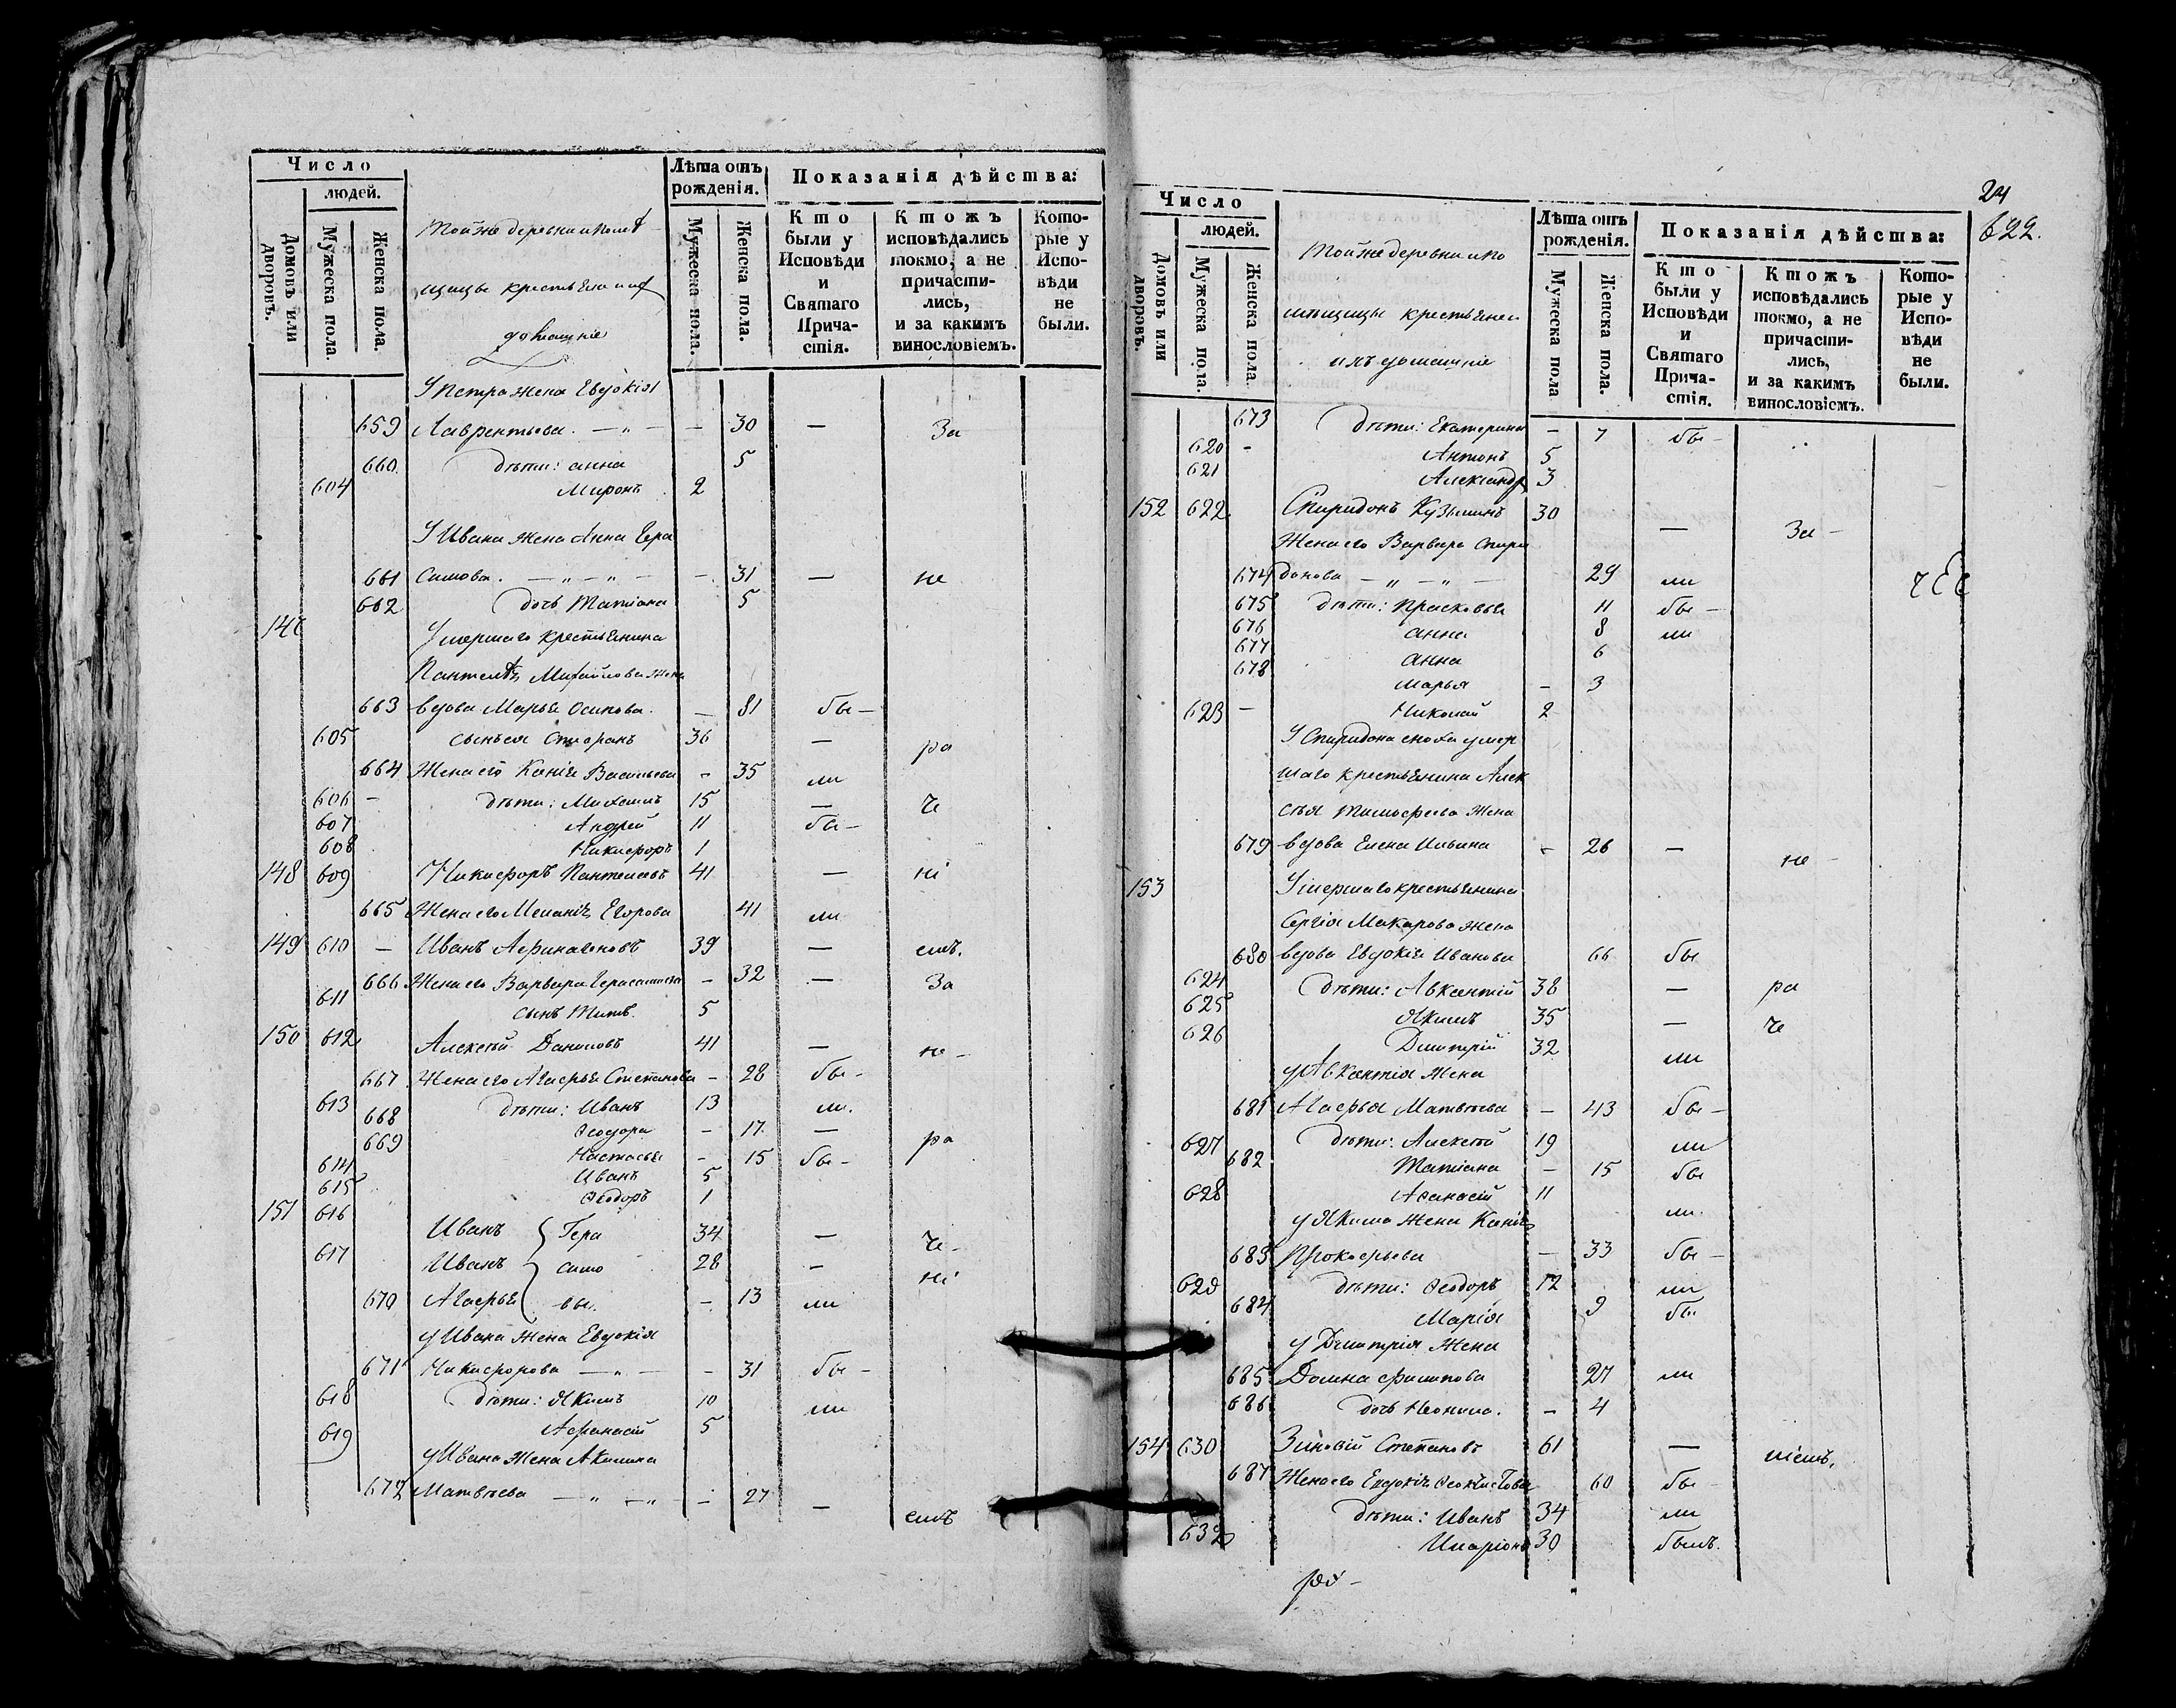 Число
людей.
Домовъ или дворовъ.
Мужеска пола.
Женска пола.
Той же деревни и помѣ
щицы крестьяне и ихъ
домашніе
Лѣта отъ рожденія.
Мужеска пола.
Женска пола.
Показанія дѣйства:
Кто были у Исповѣди и Святаго Причастія.
Ктожъ исповѣдались токмо, а не причастились, и за какимъ винословіемъ.
Которые у Исповѣди не были.
У Петра жена Евдокія
659 Лаврентьева. — „ — — 30 — За
660. дѣти: Анна 5
604 Миронъ 2
У Ивана жена Анна Гера
661 симова. — „ — „ — — 31 — не
662 дочь Татіана 5
Умершаго крестьянина
Пантелѣя Михайлова жена
663 вдова Марья Осипова. — 81 бы —
605 сынъ ея Стефанъ 36 — ра
664 Жена его Ксенія Васильева - 35 ли
606 — дѣти: Михаилъ 15 — че
607 Андрей 11 бы —
608 Никифоръ 1
148 609 Никифоръ Пантелеевъ 41 — ні
665 Жена его Меланія Егорова 41 ли
149 610 — Иванъ Афиногеновъ 39 — емъ.
666 Жена его Варвара Герасимова - 32 — За
611 сынъ Титъ. 5
150 612 Алексѣй Даниловъ 41 — не -
667 Жена его Агафья Степанова - 28 бы -
613 дѣти: Иванъ 13 ли.
668 Ѳеодора - 17 — ра
669 Настасья - 15 бы -
614 Иванъ 5
615 Ѳеодоръ 1
151 616 Иванъ Гера 34 — че -
617 Иванъ симо 28 — ні
670 Агафья вы. - 13 ли
у Ивана жена Евдокія
671 Никифорова — „ — - 31 бы -
618 дѣти: Якимъ 10 ли
619 Афанасій 5
у Ивана жена Акилина
672 Матвѣева — „ — „ - 27 — емъ
24
622.
Число
людей.
Домовъ или дворовъ.
Мужеска пола.
Женска пола.
Той же деревни и по
мѣщицы крестьяне и
ихъ домашніе
Лѣта отъ рожденія.
Мужеска пола
Женска пола.
Показанія дѣйства:
Кто были у Исповѣди и Святаго Причастія.
Ктожъ исповѣдались токмо, а не причастились, и за какимъ винословіемъ.
Которые у Исповѣди не были.
673 дѣти: Екатерина — 7 бы —
620 - Антонъ 5
621 Александръ 3
152 622 Спиридонъ Кузьминъ 30 — За —
Жена его Варвара Спири
674 донова — „ — „ — 29 ли
675 дѣти: Прасковья 11 бы —
676 Анна 8 ли
677 Анна 6
678 Марья - 3
623 — Николай 2
У Спиридона сноха умер
шаго крестьянина Алек
сѣя Тимофеева жена
679 вдова Елена Ильина - 26 — не -
153 Умершаго крестьянина
Сергія Макарова жена
680 вдова Евдокія Иванова 66 бы
624 дѣти: Авксентій 38 — ра
625 Якимъ 35 — че
626 Дмитрій 32 ли
у Авксентія жена
681 Агафья Матвѣева — 43 бы —
627 дѣти: Алексѣй 19 ли
682 Татіана — 15 бы
628 Афанасій 11 ли
у Якима жена Ксенія
683 Прокофьева — 33 бы —
629 дѣти: Ѳеодоръ 12 ли
684 Марія 9 бы
у Дмитрія жена
685 Домна Филипова 27 ли
686 дочь Неонила. — 4
154 630 Зиновій Степановъ 61 — ніемъ.
687 Жена его Евдокія Ѳеоктистова 60 бы -
дѣти: Иванъ 34 ли
632 Иларіонъ 30 былъ.